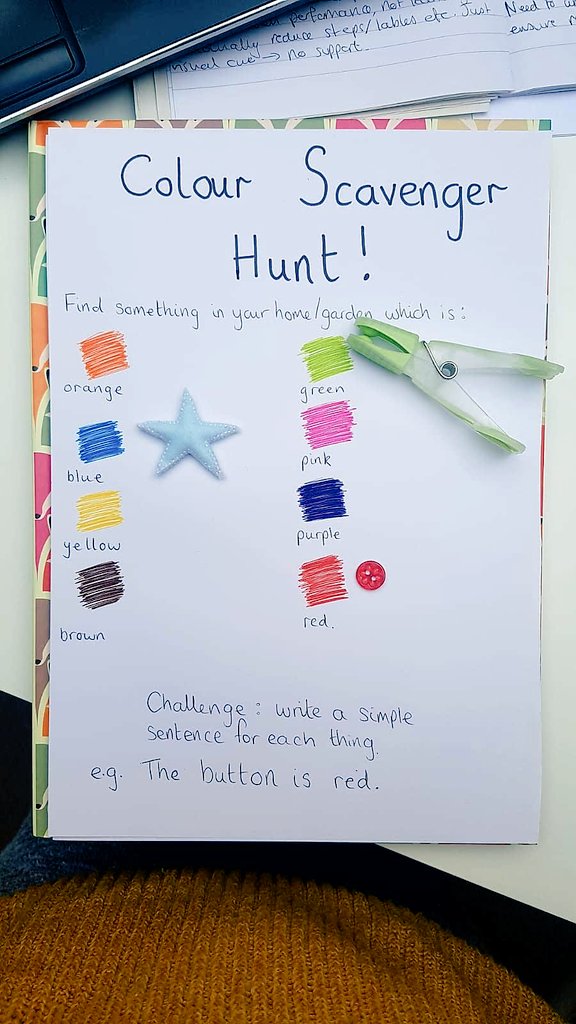 performance, not
reduce steps/lables etc. Just
visual cue → no support.
Need to
ensure
Colour Scavenger
Hunt!
Find something in your home/garden which is:
orange
green
blue
pink
yellow
purple
brown
red.
Challenge: write a simple
sentence for each thing.
e.g. The button is red.